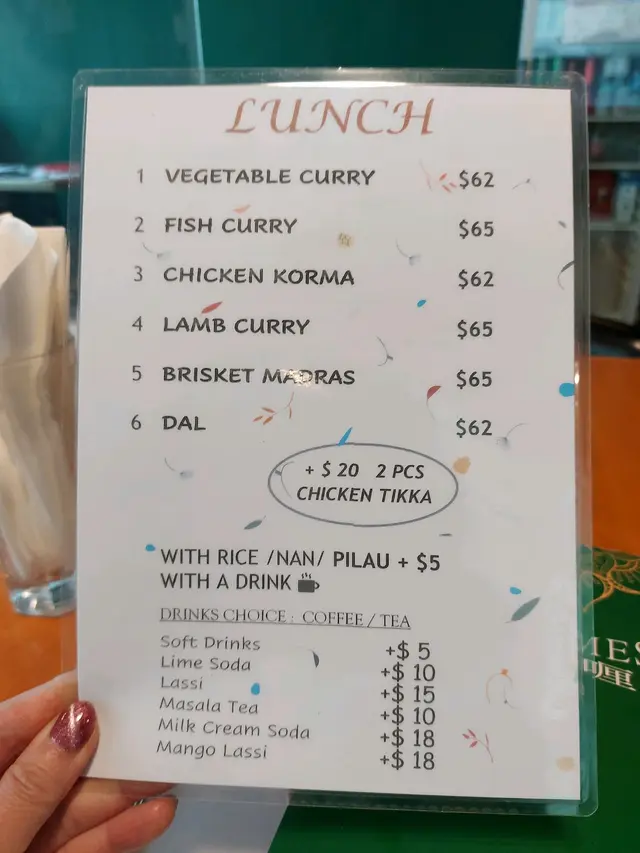 LUNCH
1 VEGETABLE CURRY $62
2 FISH CURRY $65
3 CHICKEN KORMA $62
4 LAMB CURRY $65
5 BRISKET MADRAS $65
6 DAL $62
+ $ 20 2 PCS
CHICKEN TIKKA
WITH RICE /NAN/ PILAU + $5
WITH A DRINK
DRINKS CHOICE : COFFEE / TEA
Soft Drinks +$ 5
Lime Soda +$ 10
Lassi +$ 15
Masala Tea +$ 10
Milk Cream Soda +$ 18
Mango Lassi +$ 18